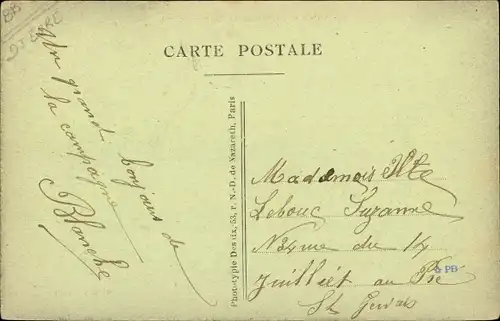 CARTE POSTALE
Un grand bonjour de
la campagne
Blanche
Phototypie Desaix, 53, r. N.-D. de Nazareth, Paris
Mademoiselle
Lebouc Suzanne
N 24 rue du 14
Juilliet au Pré
St Gervais
PB